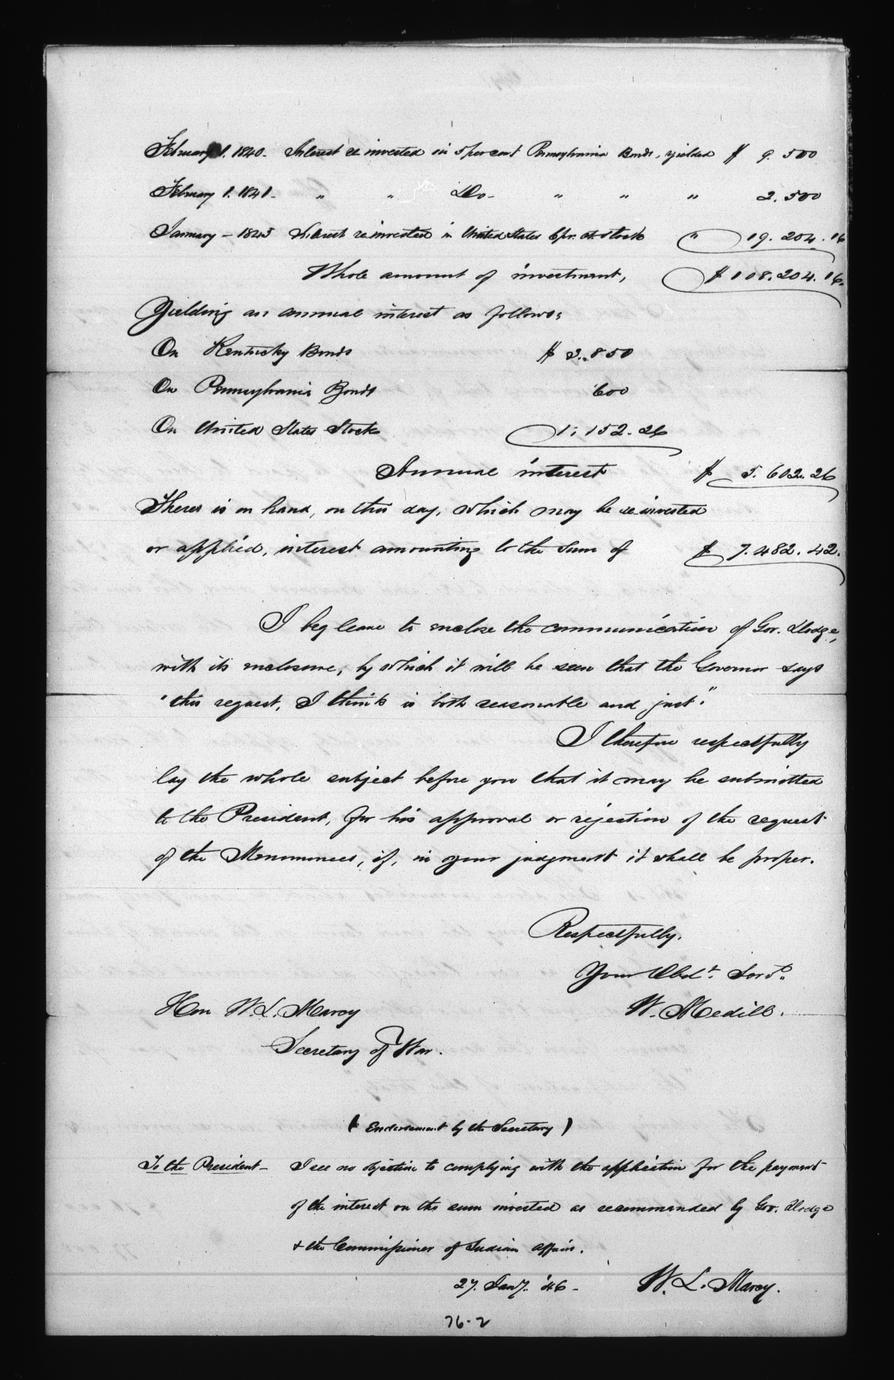 February 1. 1840. Interest re invested in 5 per cent Pennsylvania Bonds, yielded $ 9.500
February 1. 1841. " " Do. " " " 2.500
January — 1843 Interest re invested in United States 6 pr. ct. stock " 19.204.16
Whole amount of investment, $108.204.16.
Yielding an annual interest as follows:
On Kentucky Bonds $ 3.850
On Pennsylvania Bonds 600
On United States Stock 1.152.26
Annual interest $ 5.602.26
There is on hand, on this day, which may be re invested
or applied, interest amounting to the sum of $ 7.482.42.
I beg leave to enclose the communication of Gov. Dodge,
with its enclosure, by which it will be seen that the Governor says
"this request, I think is both reasonable and just".
I therefore respectfully
lay the whole subject before you that it may be submitted
to the President, for his approval or rejection of the request
of the Menominees, if, in your judgment it shall be proper.
Respectfully,
Your Obdt. Servt.
Hon W. L. Marcy W. Medill.
Secretary of War.
(Endorsement by the Secretary)
To the President— I see no objection to complying with the application for the payment
of the interest on the sum invested as recommended by Gov. Dodge
& the Commissioner of Indian affairs.
27. Jany. '46— W. L. Marcy.
76-2